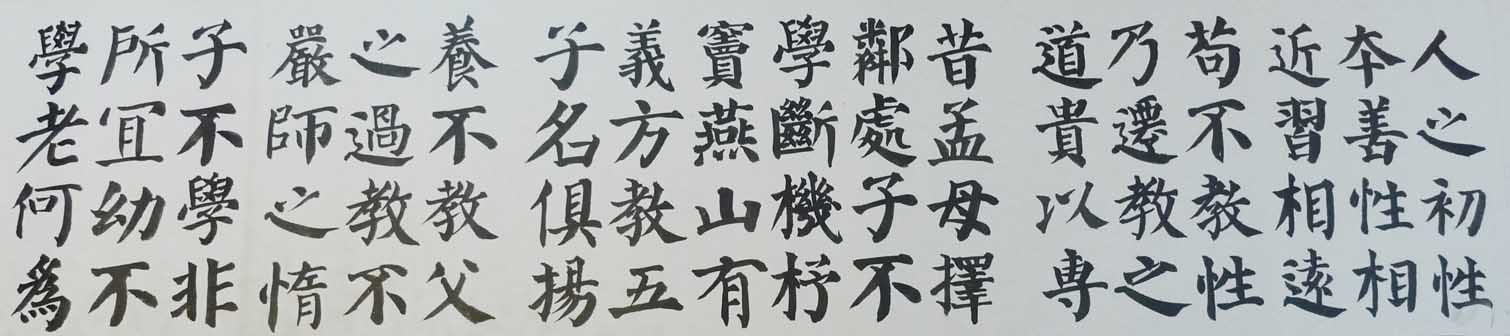 人之初性
本善性相
近習相遠
苟不教性
乃遷教之
道貴以専
昔孟母擇
鄰處子不
學斷機杼
竇燕山有
義方教五
子名俱揚
養不教父
之過教不
嚴師之惰
子不學非
所宜幼不
學老何為